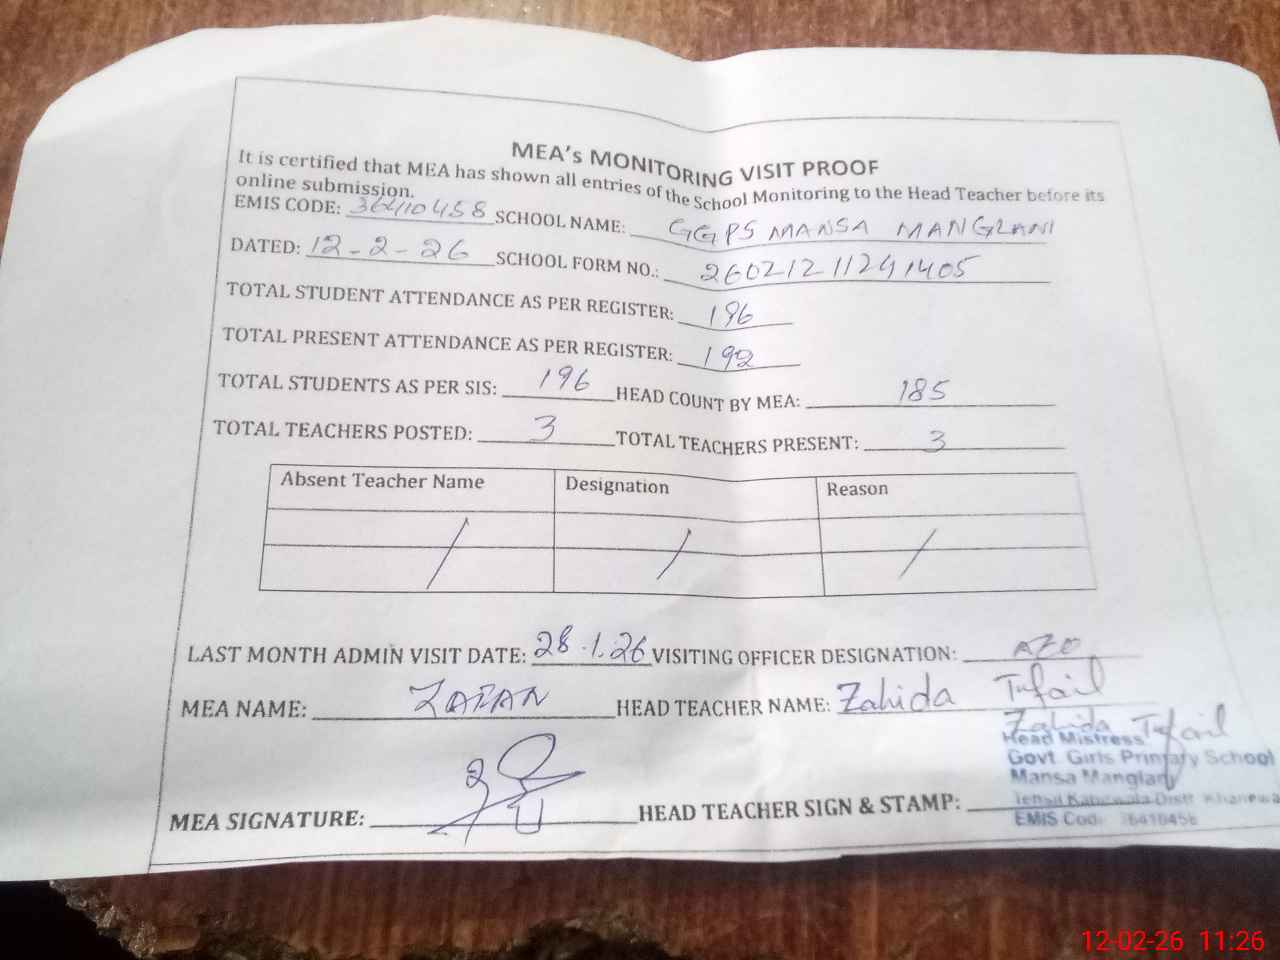 MEA's MONITORING VISIT PROOF
It is certified that MEA has shown all entries of the School Monitoring to the Head Teacher before its
online submission.
EMIS CODE: 36410458 SCHOOL NAME: GGPS MANSA MANGLANI
DATED: 12-2-26 SCHOOL FORM NO.: 26021211241405
TOTAL STUDENT ATTENDANCE AS PER REGISTER: 196
TOTAL PRESENT ATTENDANCE AS PER REGISTER: 192
TOTAL STUDENTS AS PER SIS: 196 HEAD COUNT BY MEA: 185
TOTAL TEACHERS POSTED: 3 TOTAL TEACHERS PRESENT: 3
Absent Teacher Name Designation Reason
/ / /
LAST MONTH ADMIN VISIT DATE: 28.1.26 VISITING OFFICER DESIGNATION:
MEA NAME: HEAD TEACHER NAME: Zahida Tufail
Zahida Tufail
Head Mistress
Govt. Girls Primary School
Mansa Manglani
MEA SIGNATURE: HEAD TEACHER SIGN & STAMP:
Tehsil Kabirwala Distt Khanewal
EMIS Code 36410458
12-02-26 11:26